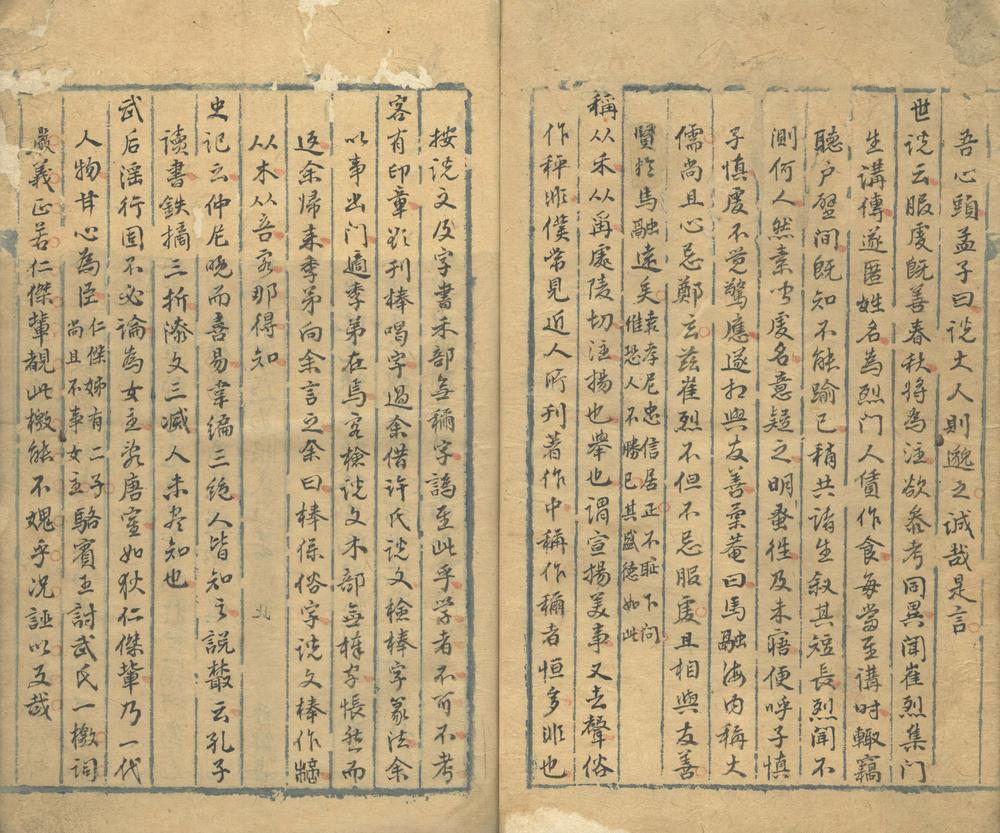 吾心頭孟子曰説大人則邈之誠哉是言
世説云服虔既善春秋將為注欲叅考同異聞崔烈集門
生講傳遂匿姓名為烈門人賃作食每當至講时輙竊
聽户壁间既知不能踰已稍共诸生叙其短長烈聞不
測何人然素聞虔名意疑之明蚤徃及未寤便呼子慎
子慎虔不覚驚應遂相與友善菴曰馬融海内稱大
儒尚且心忌鄭玄兹崔烈不但不忌服虔且相與友善
賢扵馬融遠矣惟恐人不勝已其盛德如此
忠信居正不耻下问
稱从禾从爯處陵切注揚也舉也谓宣揚美事又去聲俗
作秤非僕常見近人所刊著作中稱作稱者恒多非也
按説文及字書禾部無稱字謌至此乎学者不可不考
客有印章欲刊棒喝字過余借许氏説文檢棒字篆法余
以事出门適季弟在焉客檢説文木部無棒字悵然而
返余歸来季弟向余言之余曰棒係俗字説文棒作㭋
从木从咅客那得知
史记云仲尼晚而喜易韋编三绝人皆知之説蓛云孔子
读書鉄摘三折漆文三滅人未尽知也
武后滛行固不必論為女主乱唐室如狄仁傑輩乃一代
人物甘心為臣仁傑姊有二子
尚且不事女主駱賓王討武氏一檄词
嚴義正若仁傑輩覩此檄能不媿乎况誣以反哉